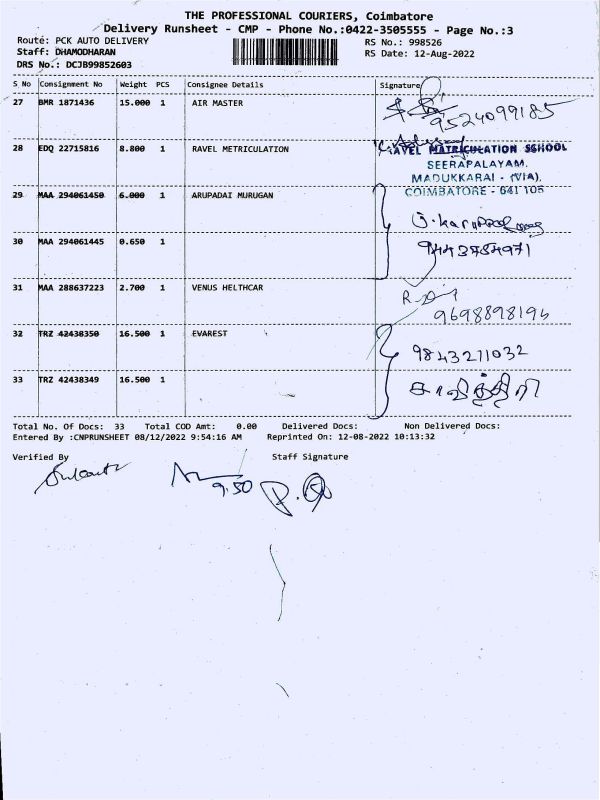 THE PROFESSIONAL COURIERS, Coimbatore
Delivery Runsheet - CMP - Phone No.:0422-3505555 - Page No.:3
Route: PCK AUTO DELIVERY
RS No.: 998526
Staff: DHAMODHARAN
RS Date: 12-Aug-2022
DRS No.: DCJB99852603
S No Consignment No Weight PCS Consignee Details Signature
27 BMR 1871436 15.000 1 AIR MASTER
9524099185
28 EDQ 22715816 8.800 1 RAVEL METRICULATION
RAVEL MATRICULATION SCHOOL
SEERAPALAYAM,
MADUKKARAI - (VIA),
COIMBATORE - 641 105
29 MAA 294061450 6.000 1 ARUPADAI MURUGAN
30 MAA 294061445 0.650 1
9443784971
31 MAA 288637223 2.700 1 VENUS HELTHCAR
9698898196
32 TRZ 42438350 16.500 1 EVAREST
9843211032
33 TRZ 42438349 16.500 1
சாவித்திரி
Total No. Of Docs: 33 Total COD Amt: 0.00 Delivered Docs: Non Delivered Docs:
Entered By :CNPRUNSHEET 08/12/2022 9:54:16 AM Reprinted On: 12-08-2022 10:13:32
Verified By Staff Signature
9.50